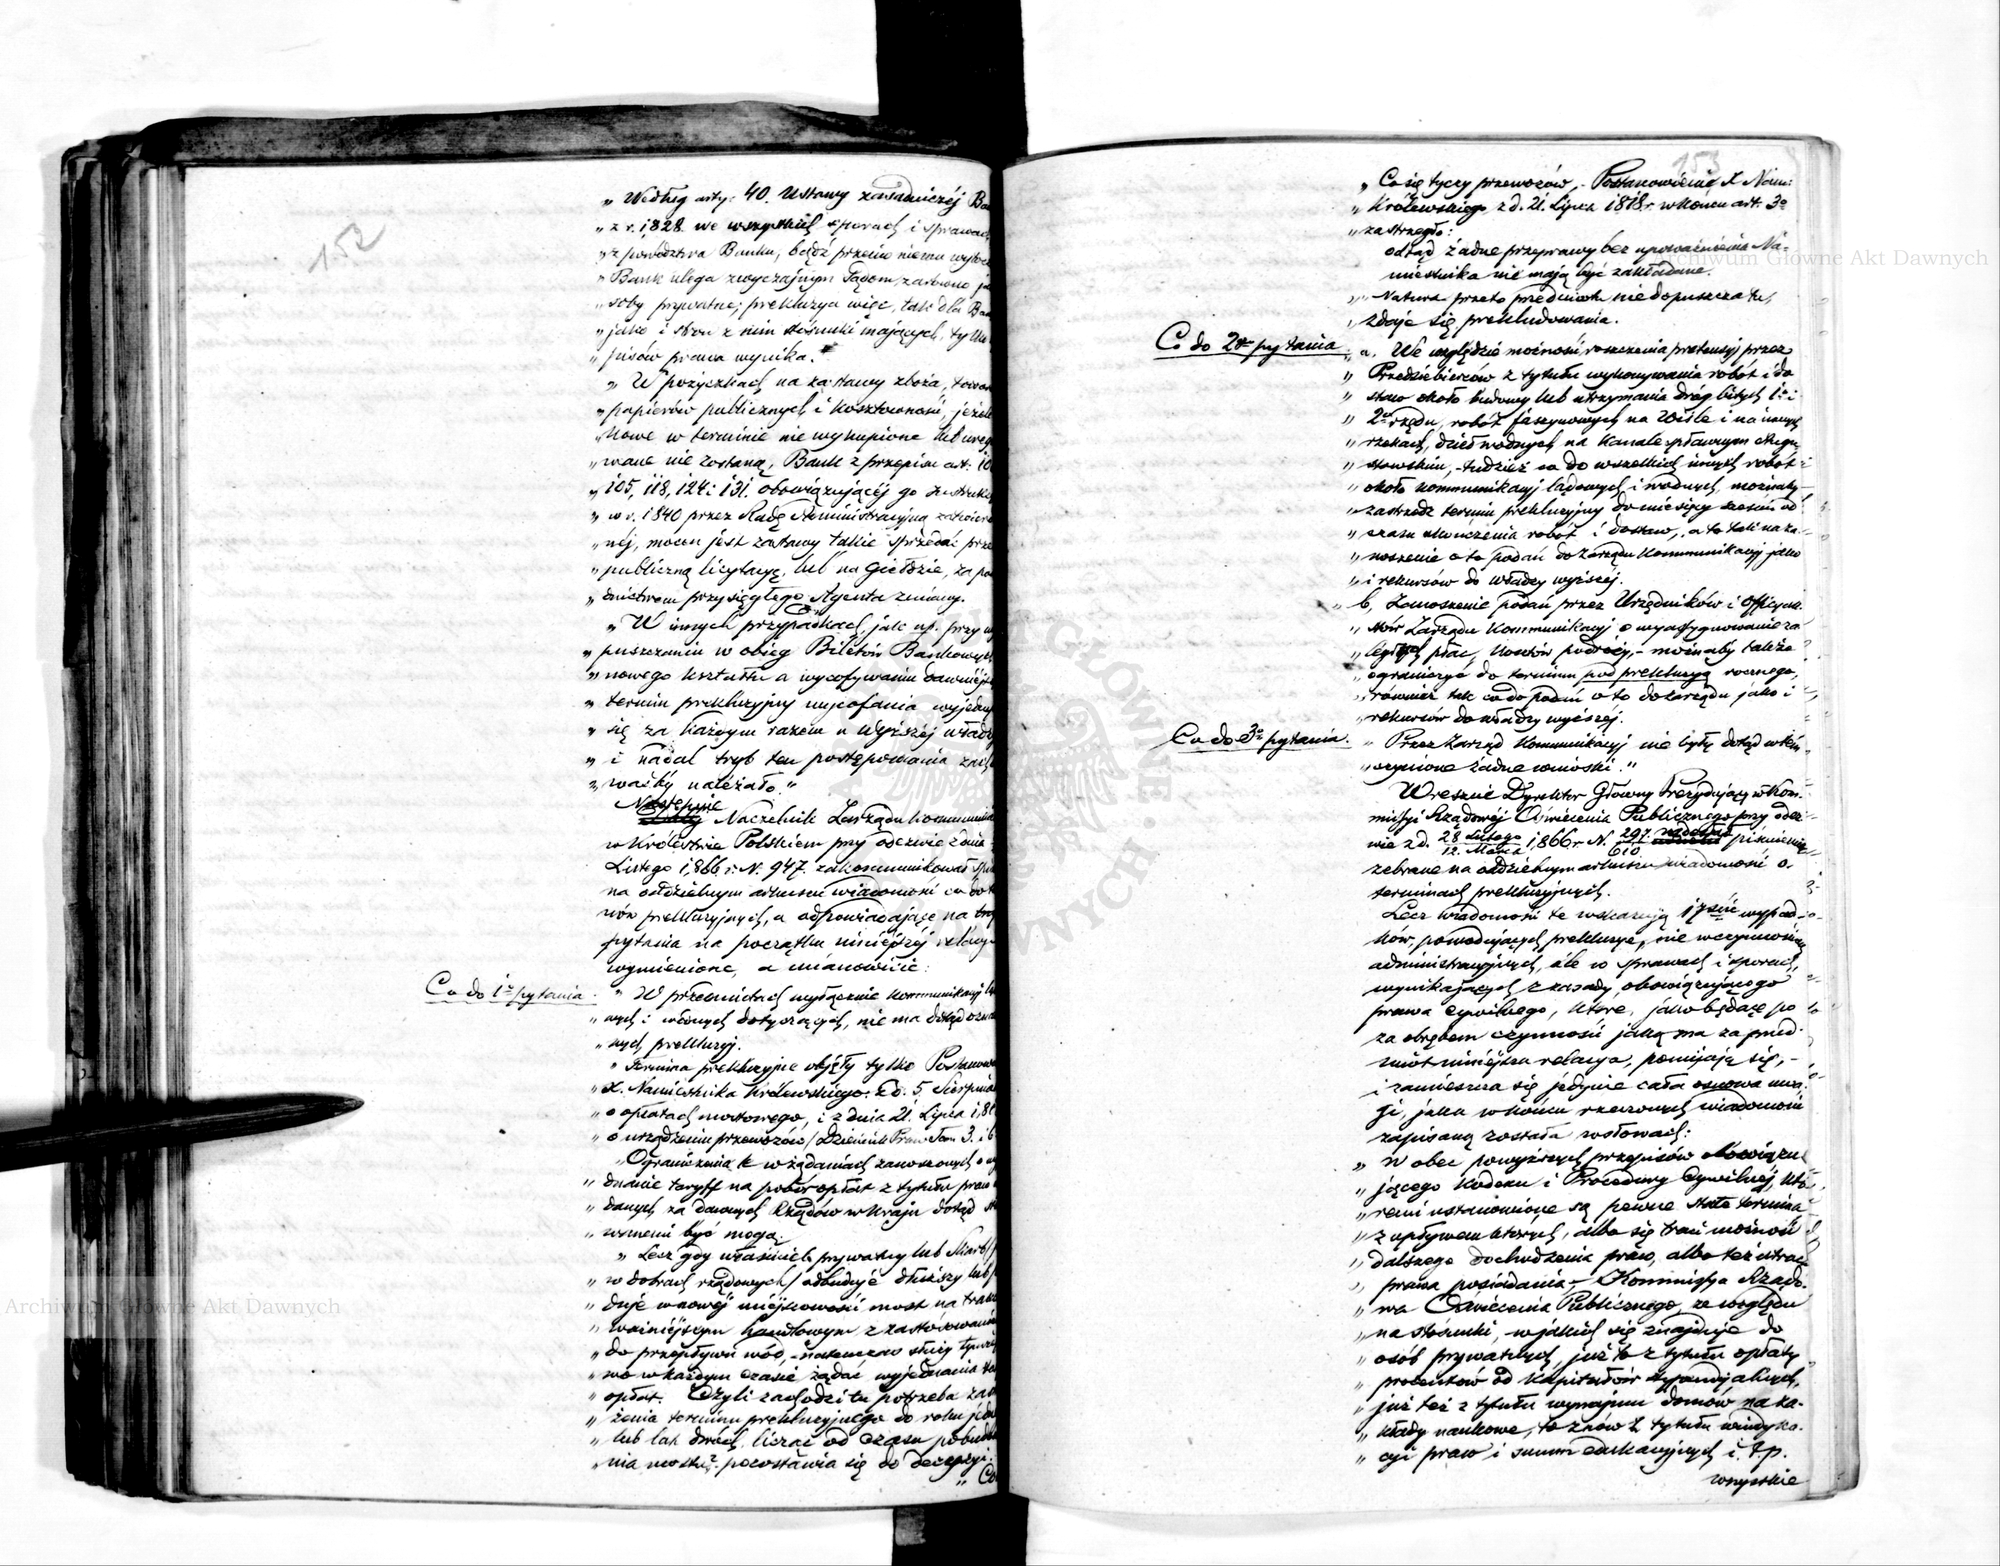 152
„ Według arty: 40. Ustawy zasadniczéj Ban
„ z r. 1828. we wszystkich sporach i sprawach
„ z powództwa Banku, bądź przeciw niemu wytocz
„ Bank ulega zwyczajnym Sądom, zarówno ja
„ soby prywatne; prekluzya więc, tak dla Ban
„ jako i stron z nim stósunki mających, tylko
„ pisów prawa wynika.
„ W pożyczkach na zastawy zboża, towar
„ papierów publicznych i kosztowności, jeżeli
„ kowe w terminie nie wykupione lub ureg
„ wane nie zostaną, Bank z przepisu art: 10
„ 105, 118, 124 i 131. obowiązującéj go Instrukc
„ w r. 1840 przez Radę Administracyjną zatwier
„ néj, mocen jest zastawy takie sprzedać prze
„ publiczną licytacyę, lub na Giełdzie, za po
„ dnictwem przysięgłego Agenta zmiany.
„ W innych przypadkach, jak np. przy w
„ puszczaniu w obieg Biletów Bankowych
„ nowego kształtu a wycofywaniu dawniéjsz
„ termin prekluzyjny wycofania wyjedny
„ się za każdym razem u Wyższéj władzy
„ i nadal tryb ten postępowania zach
„ waćby należało."
Następnie
Naczelnik Zarządu Kommunika
w Królestwie Polskiem przy odezwie z dnia
Lutego 1,866 r. N. 947. zakommunikował Spi
na oddzielnym arkuszu wiadomości co do t
nów prekluzyjnych, a odpowiadające na trzy
pytania na początku niniéjszéj relacyi
wymienione, a mianowicie:
Co do 1go pytania.
„ W przedmiotach wyłącznie kommunikacyj lą
„ wych i wodnych dotyczących, nie ma dotąd ozna
„ nych prekluzyj.
„ Termina prekluzyjne objęły tylko Postanowi
„ X. Namiestnika Królewskiego z d. 5. Sierpnia
„ o opłatach mostowego, i z dnia 21. Lipca 1,81
„ o urządzeniu przewozów / Dziennik Praw Tom 3. i 6
„ Ograniczenia te w żądaniach zanoszonych o wy
„ dnanie taryff na pobór opłat z tytułu praw
„ danych za dawnych Rządów w kraju dotąd st
„ wnemi być mogą.
„ Lecz gdy właściciel prywatny lub Skarb /
„ w dobrach rządowych / odbuduje dłuższy lub
„ duje w nowéj miéjscowości most na trak
„ ważniéjszym handlowym z zastósowaniem
„ do przepływu wód, – natenczas służy
„ wo w każdym czasie żądać wyjednania ta
„ opłat. Czyli zachodzi tu potrzeba zas
„ żenia terminu prekluzyjnego do roku jedn
„ lub lat dwóch, licząc od czasu pobudo
„ nia mostu, pozostawia się do decyzyi:
„ Co
153
„ Co się tyczy przewozów, – Postanowienie X Nam:
„ Królewskiego, z d. 21. Lipca 1818 r. w końcu art: 3o
„ zastrzegło:
odtąd żadne przeprawy bez upoważnienia Na-
miestnika nie mają być zakładane.
„ Natura przeto przedmiotu nie dopuszcza tu,
„ zdaje się, prekludowania.
Co do 2go pytania
„ a, We względzie możności roszczenia pretensyj przez
„ Przedsiebierców z tytułu wykonywania robót i do
„ staw około budowy lub utrzymania dróg bitych 1o i
„ 2o rzędu, robót faszynowych na Wiśle i na innych
„ rzekach, dzieł wodnych na kanale spławnym Augu
„ stowskim, – tudzież co do wszelkich innych robót
„ około kommunikacyj lądowych i wodnych, możnaby
„ zastrzedz termin prekluzyjny do miesięcy sześciu od
„ czasu ukończenia robót i dostaw, a to tak na za-
„ noszenie o to podań do Zarządu kommunikacyj jako
„ i rekursów do władzy wyższéj.
„ b, Zanoszenie podań przez Urzędników i Officyal.
„ stów Zarządu kommunikacyj o wyasygnowanie za
„ ległych płac, kosztów podróży, – możnaby także
„ ograniczyć do terminu pod prekluzyą rocznego,
„ również tak co do podań o to do Zarządu jako i
„ rekursów do władzy wyższéj.
Co do 3o pytania.
„ Przez Zarząd kommunikacyj nie były dotąd w tém
„ czynione żadne wnioski."
Wreszcie Dyrektor Główny Prezydujący w Kom.
missyi Rządowéj Oświecenia Publicznego przy odez
wie z d. 28 Lutego / 12. Marca 1,866 r. N. 297. / 610 nadesłał piśmiennie
zebrane na oddzielnym arkuszu wiadomości o
terminach prekluzyjnych.
Lecz wiadomości te wskazują 17ście wypad-
ków, powodujących prekluzye, nie w czynnościach
administracyjnych, ale w sprawach i sporach,
wynikających z zasady obowiązującego
prawa cywilnego, które, jako będące po
za obrębem czynności jaką ma za przed-
miot niniéjsza relacya, pomijają się, –
i zamieszcza się jedynie cała osnowa uwa
gi, jaka w końcu rzeczonych wiadomości
zapisaną została w słowach:
„ W obec powyższych przepisów obowiązu
„ jącego kodexu i Procedury Cywilnéj, któ
„ remi ustanowione są pewne stałe termina
„ z upływem których, albo się traci możność
„ dalszego dochodzenia praw, albo też utrac
„ prawa posiadania – Kommissya Rządo
„ wa Oświecenia Publicznego, ze względu
„ na stósunki, w jakich się znajduje do
„ osób prywatnych, już to z tytułu opłaty
„ procentów od kapitałów stypendyalnych,
„ już też z tytułu wynajmu domów na za-
„ kłady naukowe, to znów z tytułu windyka.
„ cyi praw i summ edukacyjnych i. t. p.
wszystkie
Archiwum Główne Akt Dawnych
Archiwum Główne Akt Dawnych